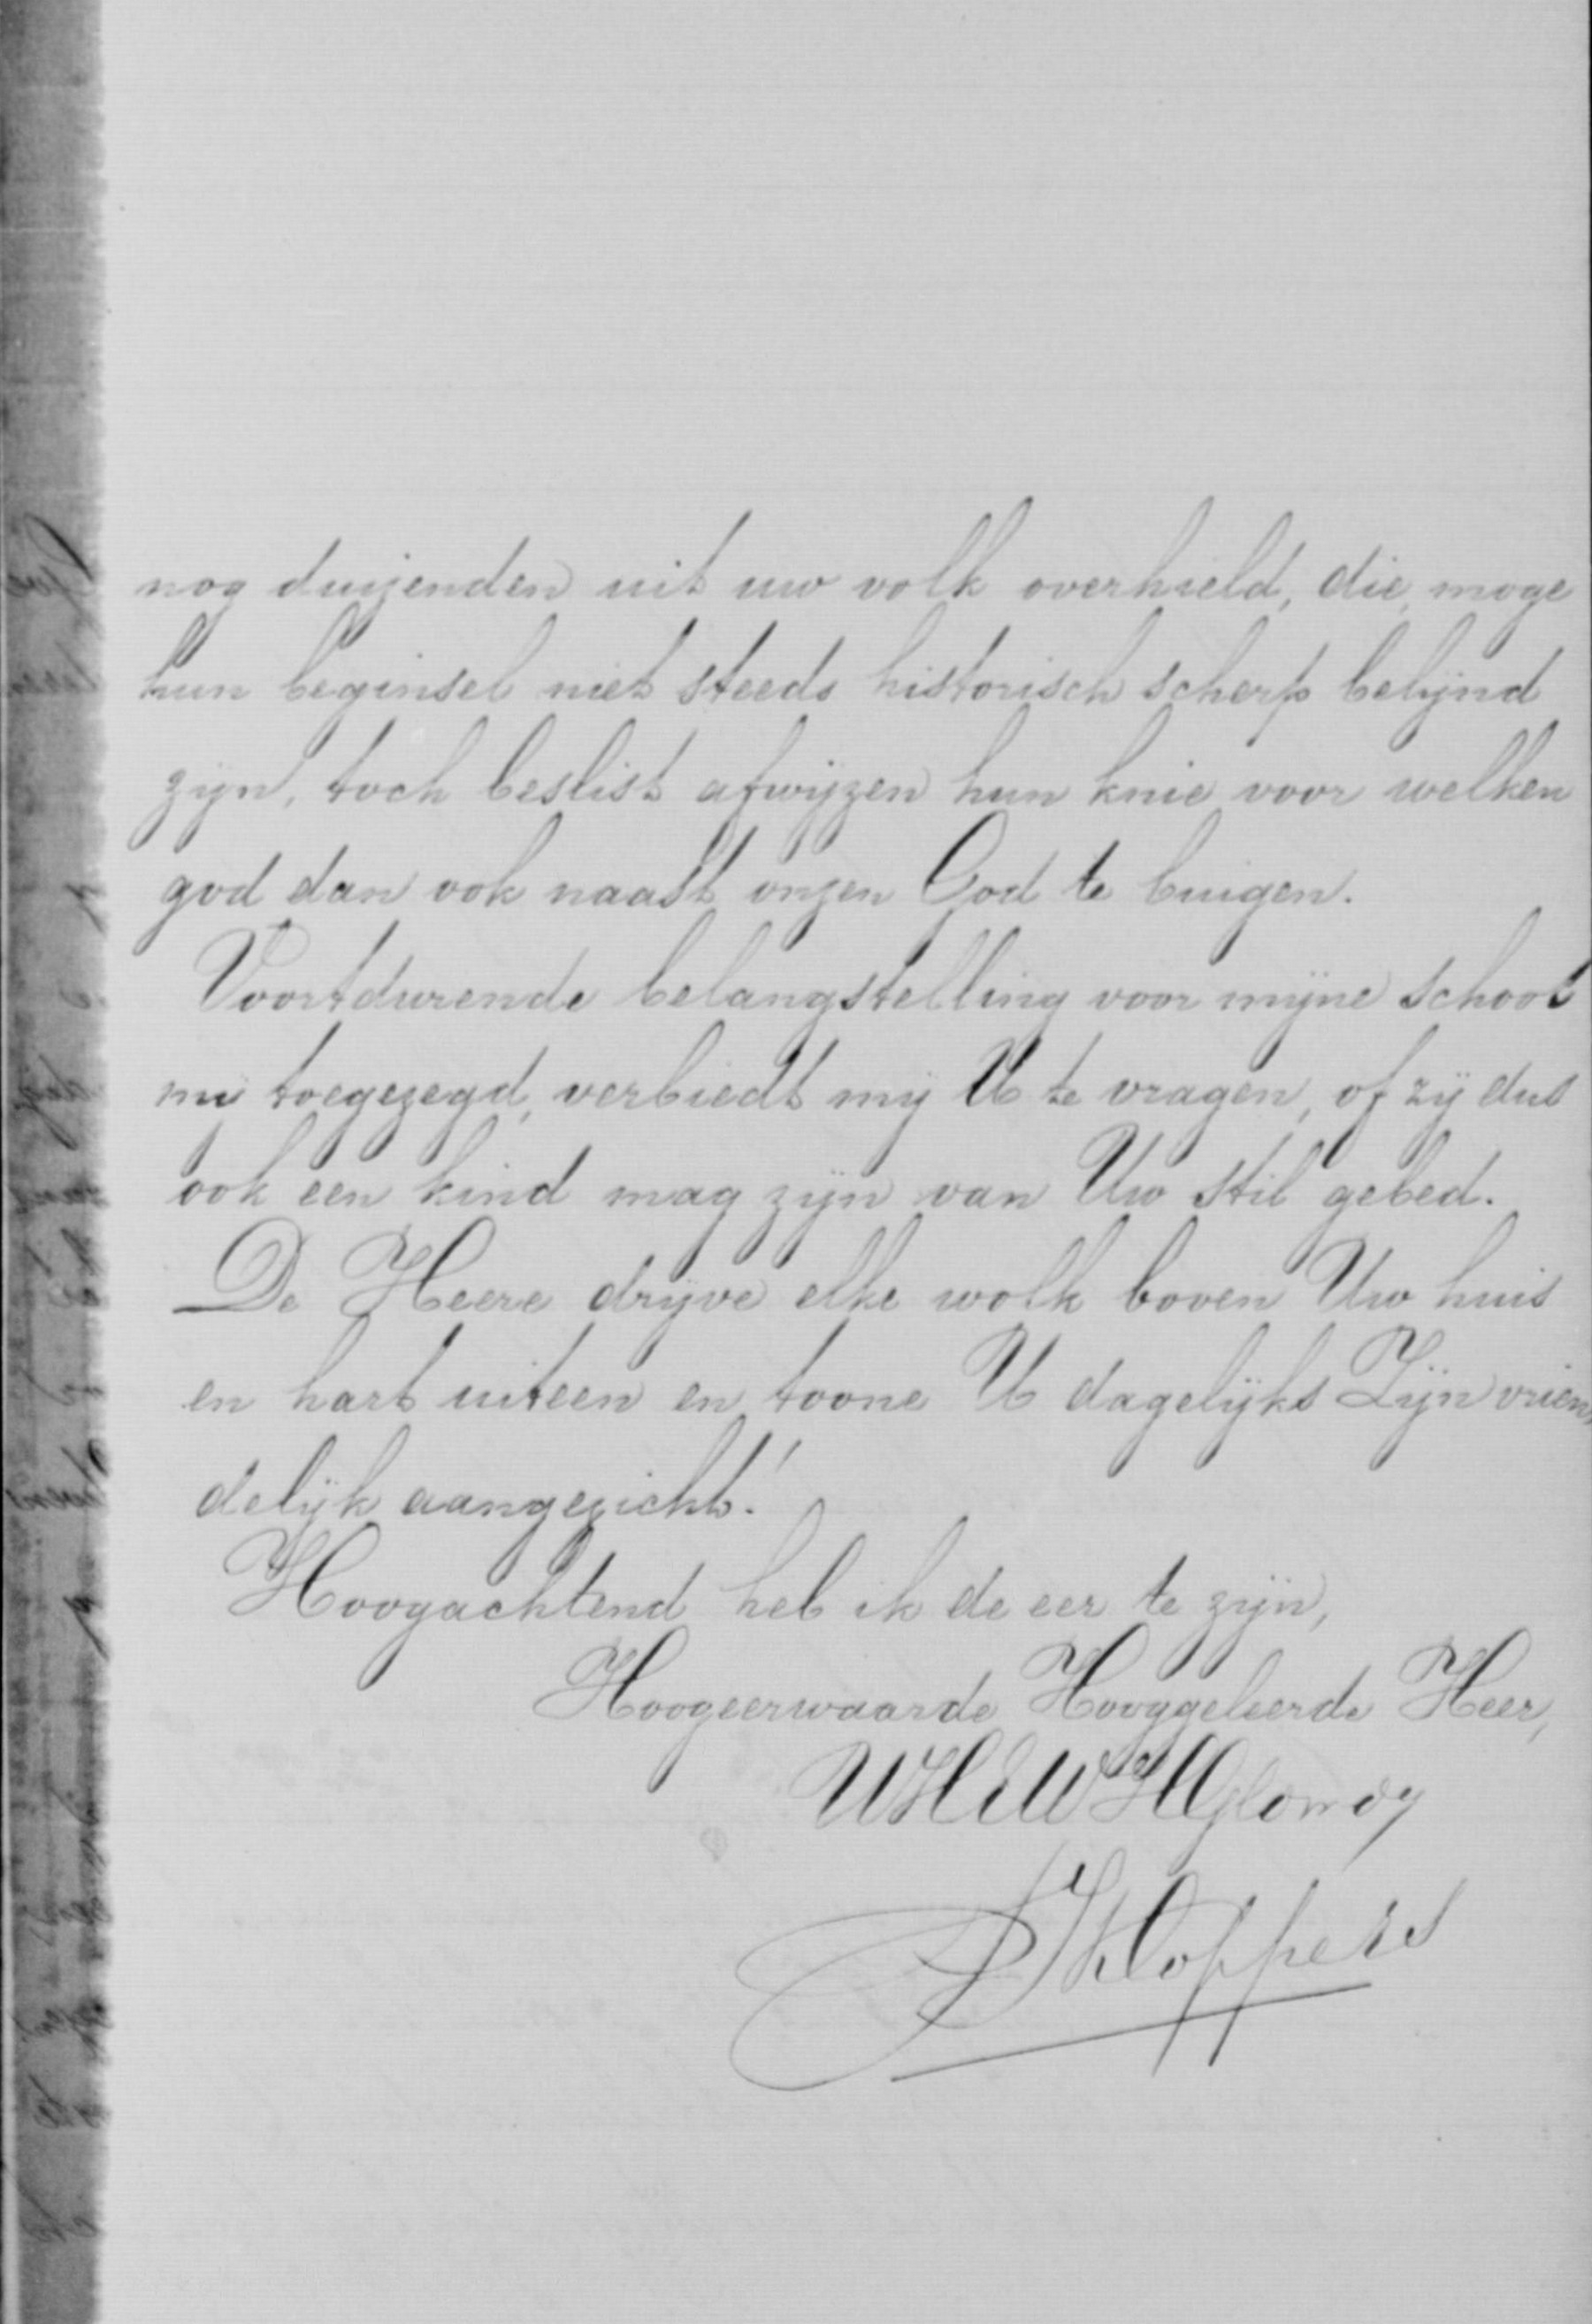 nog duizenden uit uw volk overhield, die, moge
hun beginsel niet steeds historisch scherp belijnd
zijn, toch beslist afwijzen hun knie voor welken
god dan ook naast onzen God te buigen.
Voortdurende belangstelling voor mijne school
mij toegezegd, verbiedt mij U te vragen, of zij dus
ook een kind mag zijn van Uw stil gebed.
De Heere drijve elke wolk boven Uw huis
en hart uiteen en toone U dagelijks Zijn vrien
delijk aangezicht!
Hoogachtend heb ik de eer te zijn,
Hoogeerwaarde Hooggeleerde Heer,
Kloppers